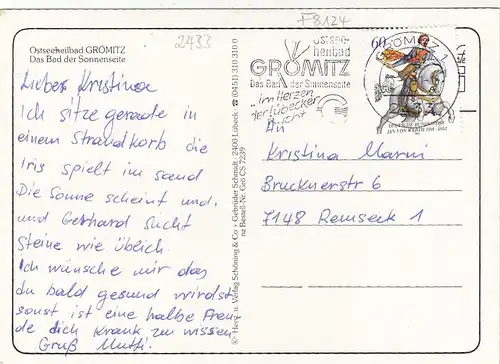 Ostseeheilbad GRÖMITZ
Das Bad der Sonnenseite
2433
F8124
Liebe Kristina
Ich sitze gerade in
einem Strandkorb die
Iris spielt im Sand
Die Sonne scheint und.
und Gerhard sucht
Steine wie üblich.
Ich wünsche mir das
du bald gesund wirst
sonst ist eine halbe Freu
de dich Krank zu wissen
Gruß Mutti.
Verlag Schöning & Co + Gebrüder Schmidt, 2400 Lübeck ☎ (0451) 310 310 0
Bestell-Nr. Grö CS 7239
Ostsee-
heilbad
GRÖMITZ
Das Bad der Sonnenseite
"im Herzen
der Lübecker
Bucht"
60
GRÖMITZ 1
An
Kristina Marni
Brucknerstr 6
7148 Remseck 1